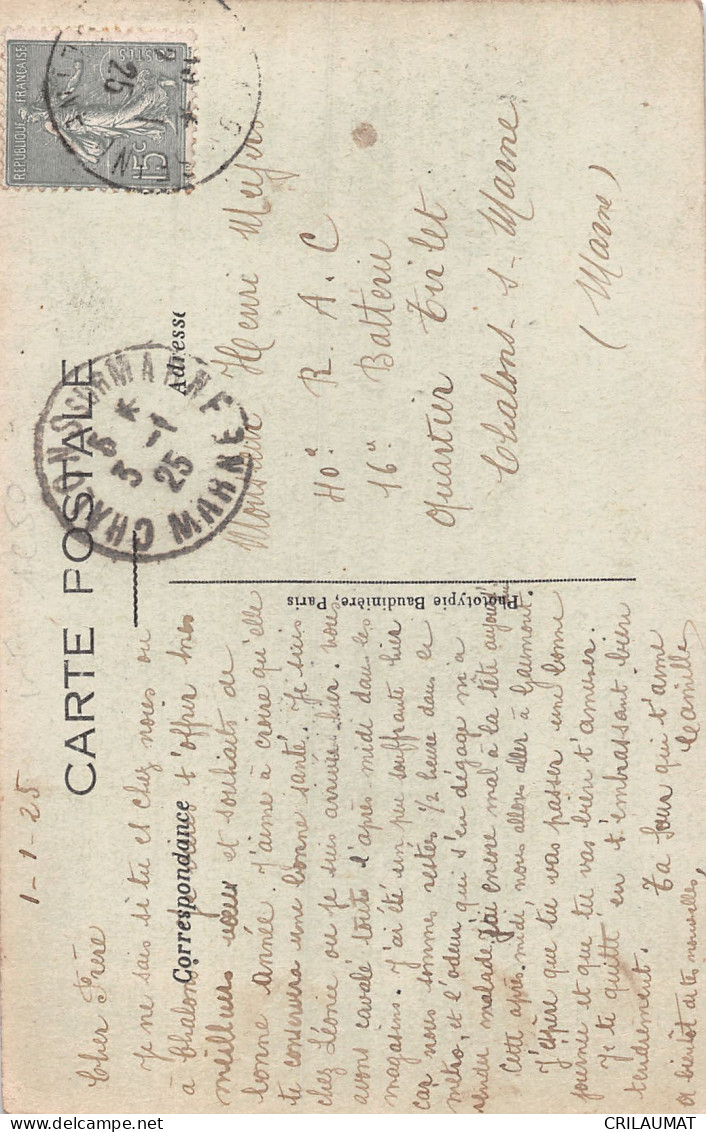 CARTE POSTALE
Correspondance
Adresse
1-1-25
Cher Frère
Je ne sais si tu es chez nous ou
à Chalons t'offrir mes
meilleurs vœux et souhaits de
bonne année. J'aime à croire qu'elle
te conservera une bonne santé. Je suis
chez Léonie ou je suis arrivée hier. nous
avons cavalé toute l'après midi dans les
magasins. J'ai été un peu souffrante hier
car nous sommes restés 1/2 heure dans le
métro, et l'odeur qui s'en dégage m'a
rendu malade, j'ai encore mal à la tête aujourd'hui
Cette après-midi, nous allons aller à Gaumont
J'espère que tu vas passer une bonne
journée et que tu vas bien t'amuser.
Je te quitte en t'embrassant bien
tendrement. Ta Sœur qui t'aime
Camille
et bientôt de tes nouvelles,
Phototypie Baudinière, Paris
Monsieur Henri
40e R. A. C
16e Batterie
Quartier Tirlet
Chalons-s-Marne
(Marne)
REPUBLIQUE FRANÇAISE
POSTES
15c
25
CHALONS SUR MARNE
5 *
3 -1
25
MARNE
CRILAUMAT